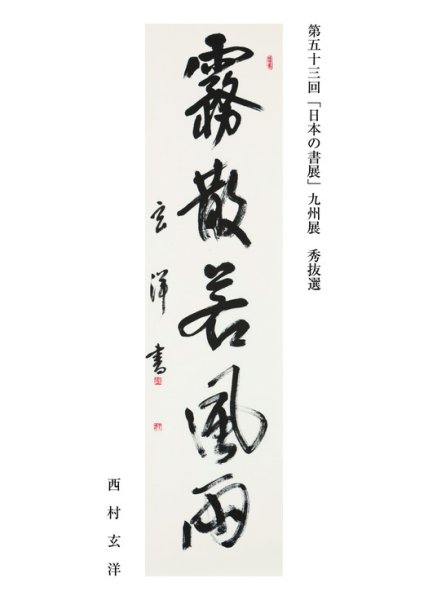 第五十三回「日本の書展」九州展　秀抜選
霧散若風雨
玄洋書
西村玄洋